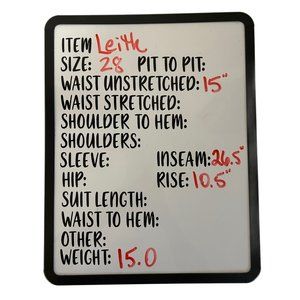 ITEM Leith
SIZE: 28 PIT TO PIT:
WAIST UNSTRETCHED: 15"
WAIST STRETCHED:
SHOULDER TO HEM:
SHOULDERS:
SLEEVE: INSEAM: 26.5"
HIP: RISE: 10.5"
SUIT LENGTH:
WAIST TO HEM:
OTHER:
WEIGHT: 15.0